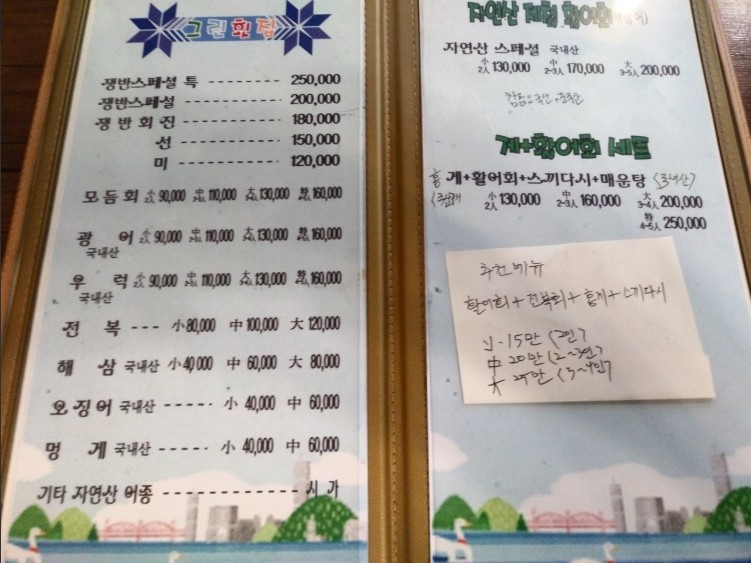 그린횟집
쟁반스페셜 특 --------- 250,000
쟁반스페셜 --------- 200,000
쟁반회진 --------- 180,000
선 --------- 150,000
미 --------- 120,000
모듬회 小2人 90,000 中 110,000 大 130,000 特 160,000
광어 小2人 90,000 中 110,000 大 130,000 特 160,000
국내산
우럭 小2人 90,000 中 110,000 大 130,000 特 160,000
국내산
전복 --- 小 80,000 中 100,000 大 120,000
해삼 국내산 小 40,000 中 60,000 大 80,000
오징어 국내산 ----- 小 40,000 中 60,000
멍게 국내산 ----- 小 40,000 中 60,000
기타 자연산 어종 ------------- 시 가
자연산 활어회
자연산 스페셜 국내산
小2人 130,000 中2~3人 170,000 大3~5人 200,000
게+활어회 세트
홍게+활어회+스끼다시+매운탕
小2人 130,000 中2~3人 160,000 大3~4人 200,000
特4~5人 250,000
추천메뉴
활어회+전복회+홍게+스끼다시
小 - 15만 (2인)
中 20만 (2~3인)
大 25만 (3~4인)